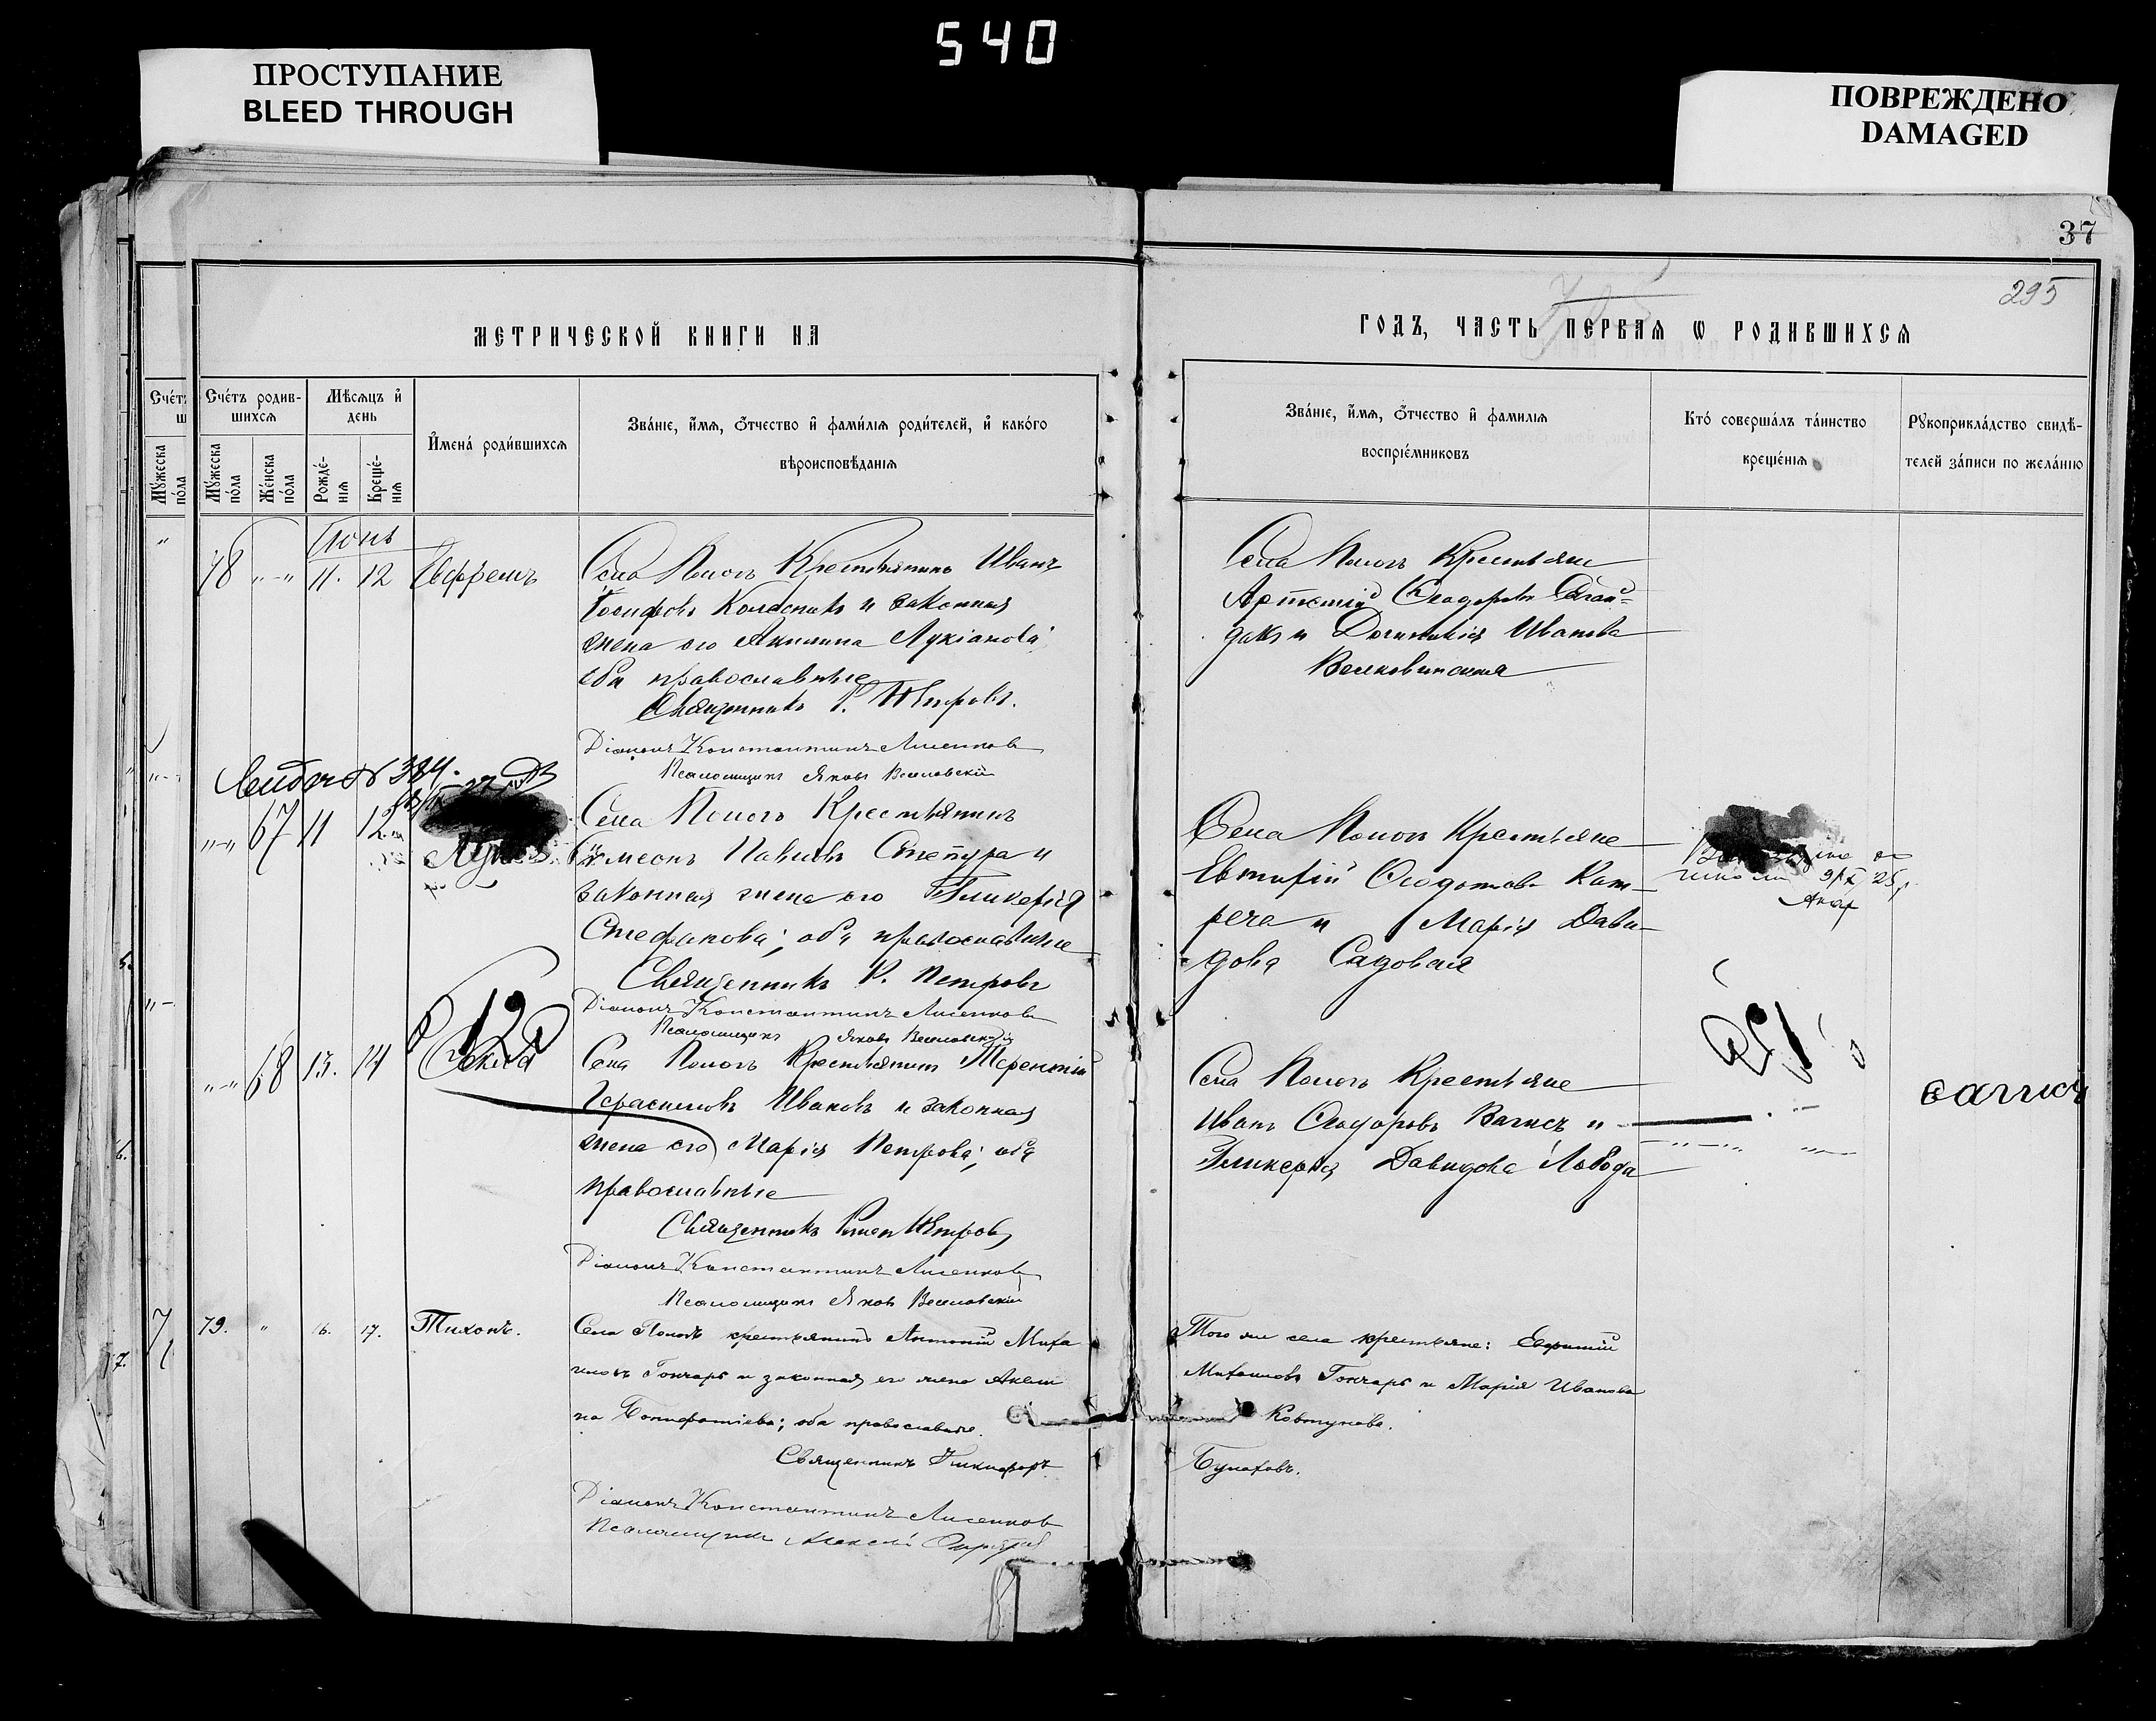 540
ПРОСТУПАНИЕ
BLEED THROUGH
ПОВРЕЖДЕНО
DAMAGED
37
295
МЕТРИЧЕСКОЙ КНИГИ НА
ГОДЪ, ЧАСТЬ ПЕРВАЯ Ѡ РОДИВШИХСЯ
Счетъ родив-
шихся
Мѣсяцъ и
день
Имена родившихся
Званіе, имя, отчество и фамилія родителей, и какого
вѣроисповѣданія
Мужеска
пола
Женска
пола
Рожде-
нія
Креще-
нія
Званіе, имя, отчество и фамилія
воспріемниковъ
Кто совершалъ таинство
крещенія
Рукоприкладство свидѣ-
телей записи по желанію
Іюнь
78 11. 12 Ефремъ
Села Пологъ Крестьянинъ Иванъ
Іосифовъ Колесникъ и законная
жена его Акилина Лукіанова
оба православные
Священникъ Р. Петровъ.
Діаконъ Константинъ Лисенковъ
Псаломщикъ Яковъ Веселовскій
Села Пологъ Крестьяне
Артемій Ѳеодоровъ
дакъ и Домникія Иванова
№ 384.
67 11 12
Села Пологъ Крестьянинъ
Симеонъ Павловъ Степура и
законная жена его Гликерія
Стефанова; оба православные
Священникъ Р. Петровъ
Діаконъ Константинъ Лисенковъ
Псаломщикъ Яковъ Веселовскій
Села Пологъ Крестьяне
Евтихій Ѳеодотовъ Кат-
реча и Марія Дави-
дова Садовая
68 13. 14 Ѳекла
Села Пологъ Крестьянинъ Терентій
Герасимовъ Ивановъ и законная
жена его Марія Петрова; оба
православные
Священникъ Петровъ
Діаконъ Константинъ Лисенковъ
Псаломщикъ Яковъ Веселовскій
Села Пологъ Крестьяне
Иванъ Ѳеодоровъ и
Гликерія Давидова Лобода
79. " 16. 17. Тихонъ.
Села Пологъ крестьянинъ Антоній Миха
иловъ Гончаръ и законная его жена Акили
на Вонифатіева; оба православные.
Священникъ Никифоръ
Діаконъ Константинъ Лисенковъ
Псаломщикъ Алексій
Того же села крестьяне: Евфимій
Михаиловъ Гончаръ и Марія Иванова
Ковтунова.
Булаховъ.